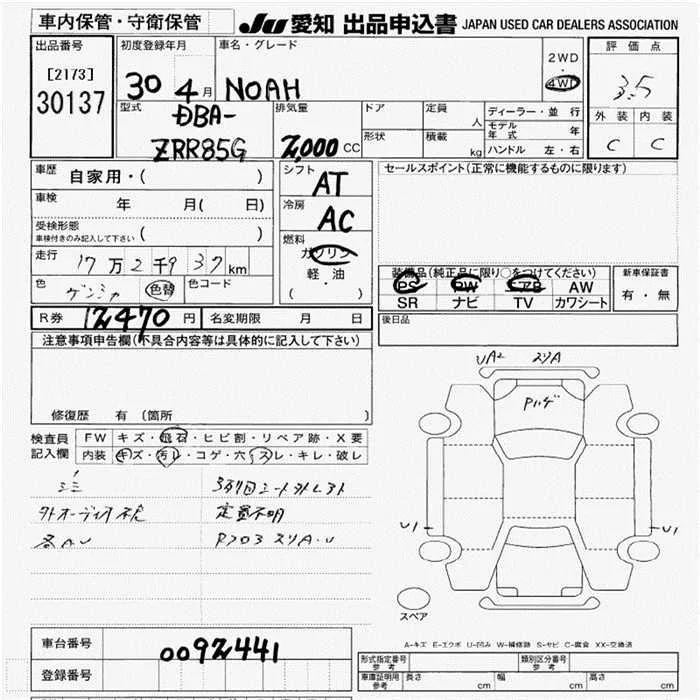 車内保管・守衛保管
JU 愛知 出品申込書 JAPAN USED CAR DEALERS ASSOCIATION
出品番号
[2173]
30137
初度登録年月
30 4月
車名・グレード
NOAH
2WD
・
4WD
評価点
3.5
外装 内装
C C
型式
DBA-
ZRR85G
排気量
2,000 CC
ドア
定員
人
形状
積載
kg
ディーラー・並行
モデル年式 年
ハンドル 左・右
車歴
自家用・( )
車検
年 月( 日)
受検形態
車検付きのみ記入して下さい ( )
走行
17万2千937km
色
色替
色コード
シフト
AT
冷房
AC
燃料
ガソリン
軽・油
( )
セールスポイント(正常に機能するものに限ります)
装備品(純正品に限り○をつけてください)
PS PW エアB AW
SR ナビ TV カワシート
新車保証書
有・無
後日品
R券 12470円
名変期限 月 日
注意事項申告欄(不具合内容等は具体的に記入して下さい)
修復歴 有(箇所 )
検査員
記入欄
FW キズ・飛石・ヒビ割・リペア跡・X要
内装 キズ・汚レ・コゲ・穴・スレ・キレ・破レ
外オーディオ
定員不明
各AU
UA2 スリA
Pハゲ
U1
U1
スペア
A-キズ E-エクボ U-凹み W-補修跡 S-サビ C-腐食 XX-交換済
車台番号
0092441
登録番号
形式指定番号
参考
類別区分番号
参考
車庫証明用
参考
長さ cm
幅 cm
高さ cm